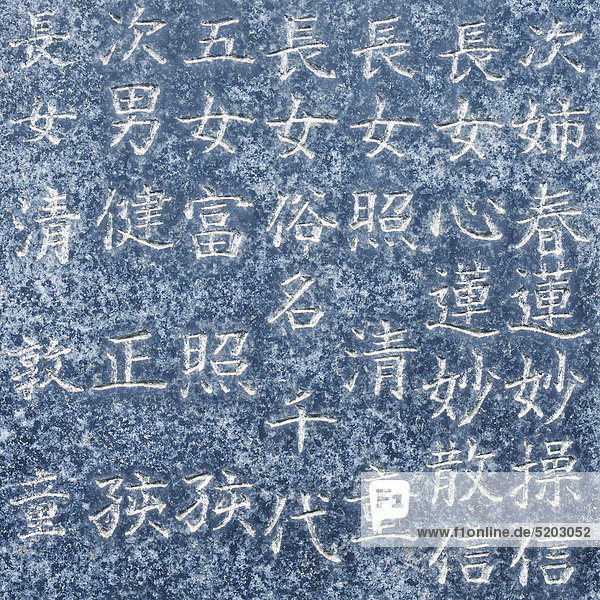 次姉春蓮妙操信
長女心蓮妙散信
長女照清童
長女俗名千代
五女富照孩
次男健正孩
長女清敦童
F1
© www.f1online.de 5203052